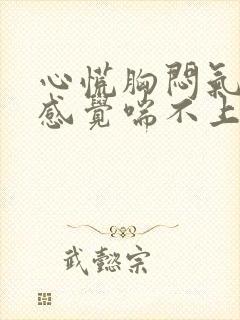 心慌胸悶氣
感覺喘不上
武懿宗